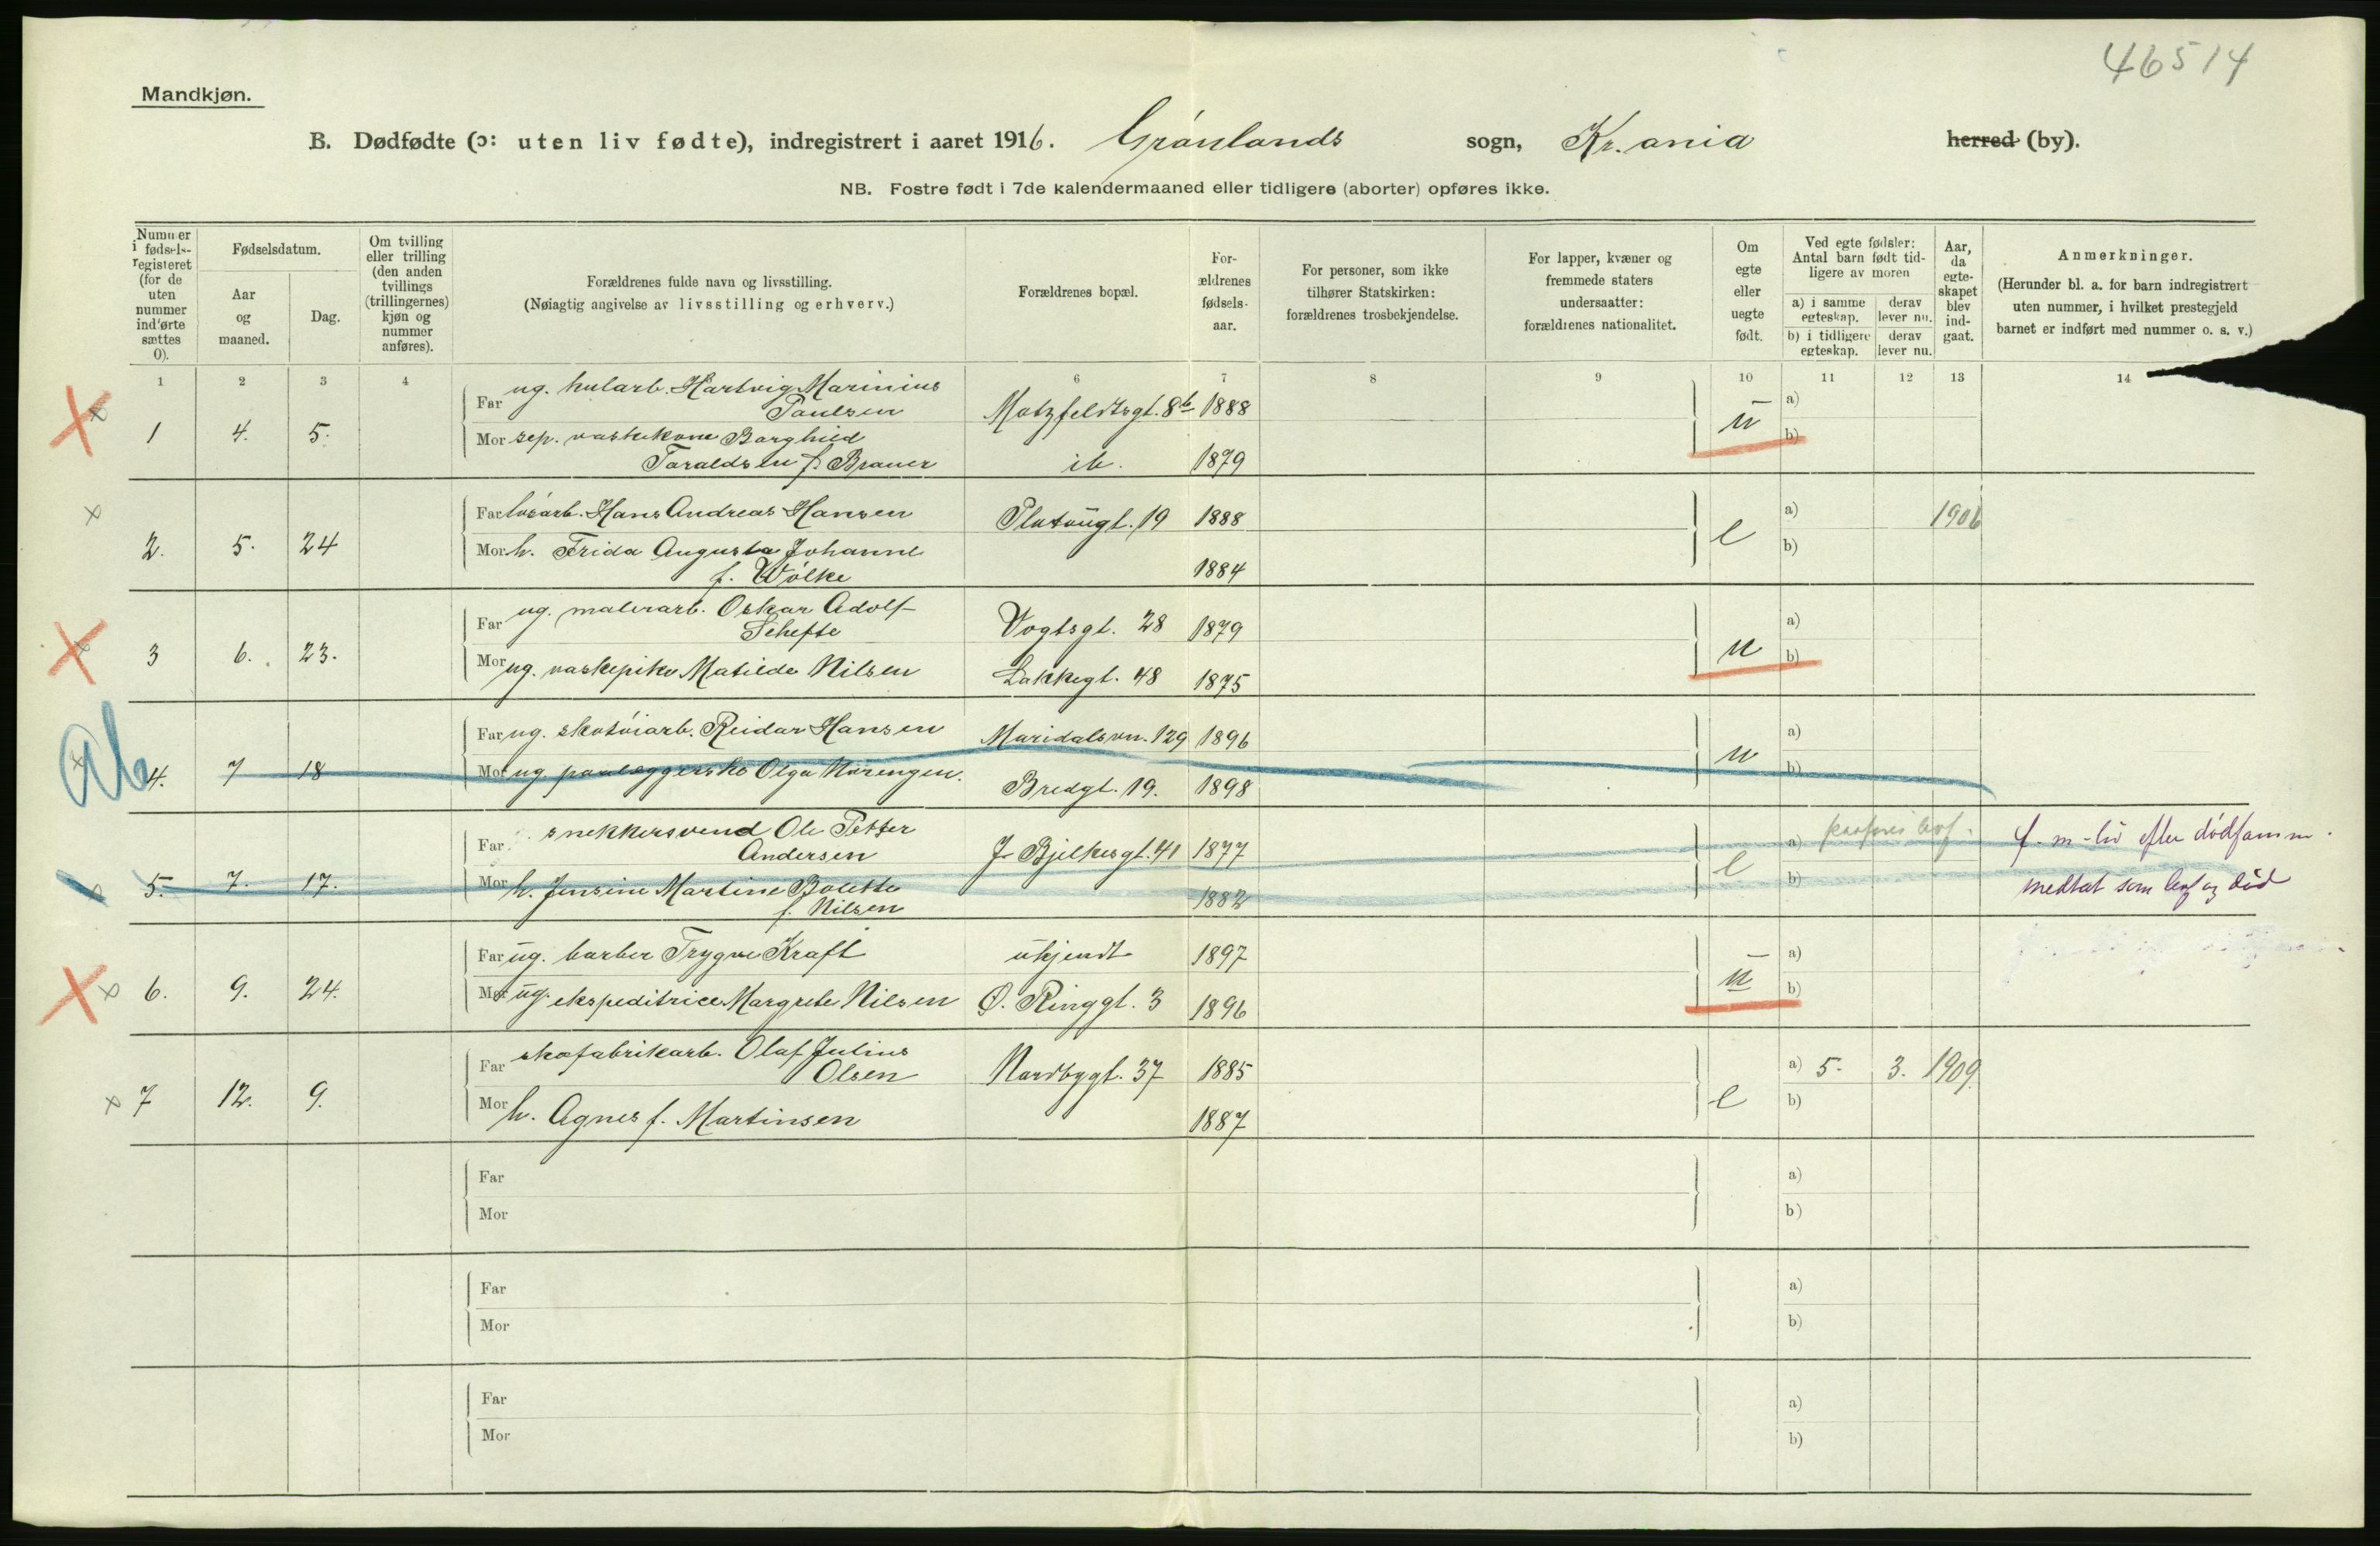 46514
Mandkjøn.
B. Dødfødte (ɔ: uten liv fødte), indregistrert i aaret 1916. Grønlands sogn, Kr.ania herred (by).
NB. Fostre født i 7de kalendermaaned eller tidligere (aborter) opføres ikke.
Nummer i fødsels-registeret (for de uten nummer indførte sættes 0).
Fødselsdatum.
Aar og maaned.
Dag.
Om tvilling eller trilling (den anden tvillings (trillingernes) kjøn og nummer anføres).
Forældrenes fulde navn og livsstilling.
(Nøiagtig angivelse av livsstilling og erhverv.)
Forældrenes bopæl.
For-ældrenes fødsels-aar.
For personer, som ikke tilhører Statskirken: forældrenes trosbekjendelse.
For lapper, kvæner og fremmede staters undersaatter: forældrenes nationalitet.
Om egte eller uegte født.
Ved egte fødsler: Antal barn født tid-ligere av moren
a) i samme egteskap.
derav lever nu.
b) i tidligere egteskap.
derav lever nu.
Aar, da egte-skapet blev ind-gaat.
Anmerkninger.
(Herunder bl. a. for barn indregistrert uten nummer, i hvilket prestegjeld barnet er indført med nummer o. s. v.)
1 2 3 4 6 7 8 9 10 11 12 13 14
Far ug. hularb. Hartvig Marinius Paulsen Motzfeldtsgt. 8b 1888 a)
1 4. 5. u
Mor sep. vaskekone Borghild Taraldsen f. Brauer ib. 1879 b)
Far løsarb. Hans Andreas Hansen Platougt. 19 1888 a) 1906
2. 5. 24 e
Mor h. Frida Augusta Johanne f. Wölke 1884 b)
Far ug. malerarb. Oskar Adolf Schefte Vogtsgt. 28 1879 a)
3 6. 23. u
Mor ug. vaskepike Matilde Nilsen Lakkegt. 48 1875 b)
Ab
Far ug. skotøiarb. Reidar Hansen Maridalsvn. 129 1896 a)
4. 7 18 u
Mor ug. paalæggerske Olga Norengen. Bredgt. 19. 1898 b)
Far snekkersvend Ole Petter Andersen J. Bjelkesgt. 41 1877 a)
f. m. liv efter dødsanm.
5. 7. 17. e
Mor h. Jensine Martine Bolette f. Nilsen 1882 b)
medtat som lev og død
Far ug. barber Trygve Kraft ukjendt 1897 a)
6. 9. 24. u
Mor ug. ekspeditrice Margrete Nilsen Ø. Ringgt. 3 1896 b)
Far skofabrikarb. Olaf Julius Olsen Nordbygt. 37 1885 a) 5. 3. 1909
7 12. 9. e
Mor h. Agnes f. Martinsen 1887 b)
Far a)
Mor b)
Far a)
Mor b)
Far a)
Mor b)